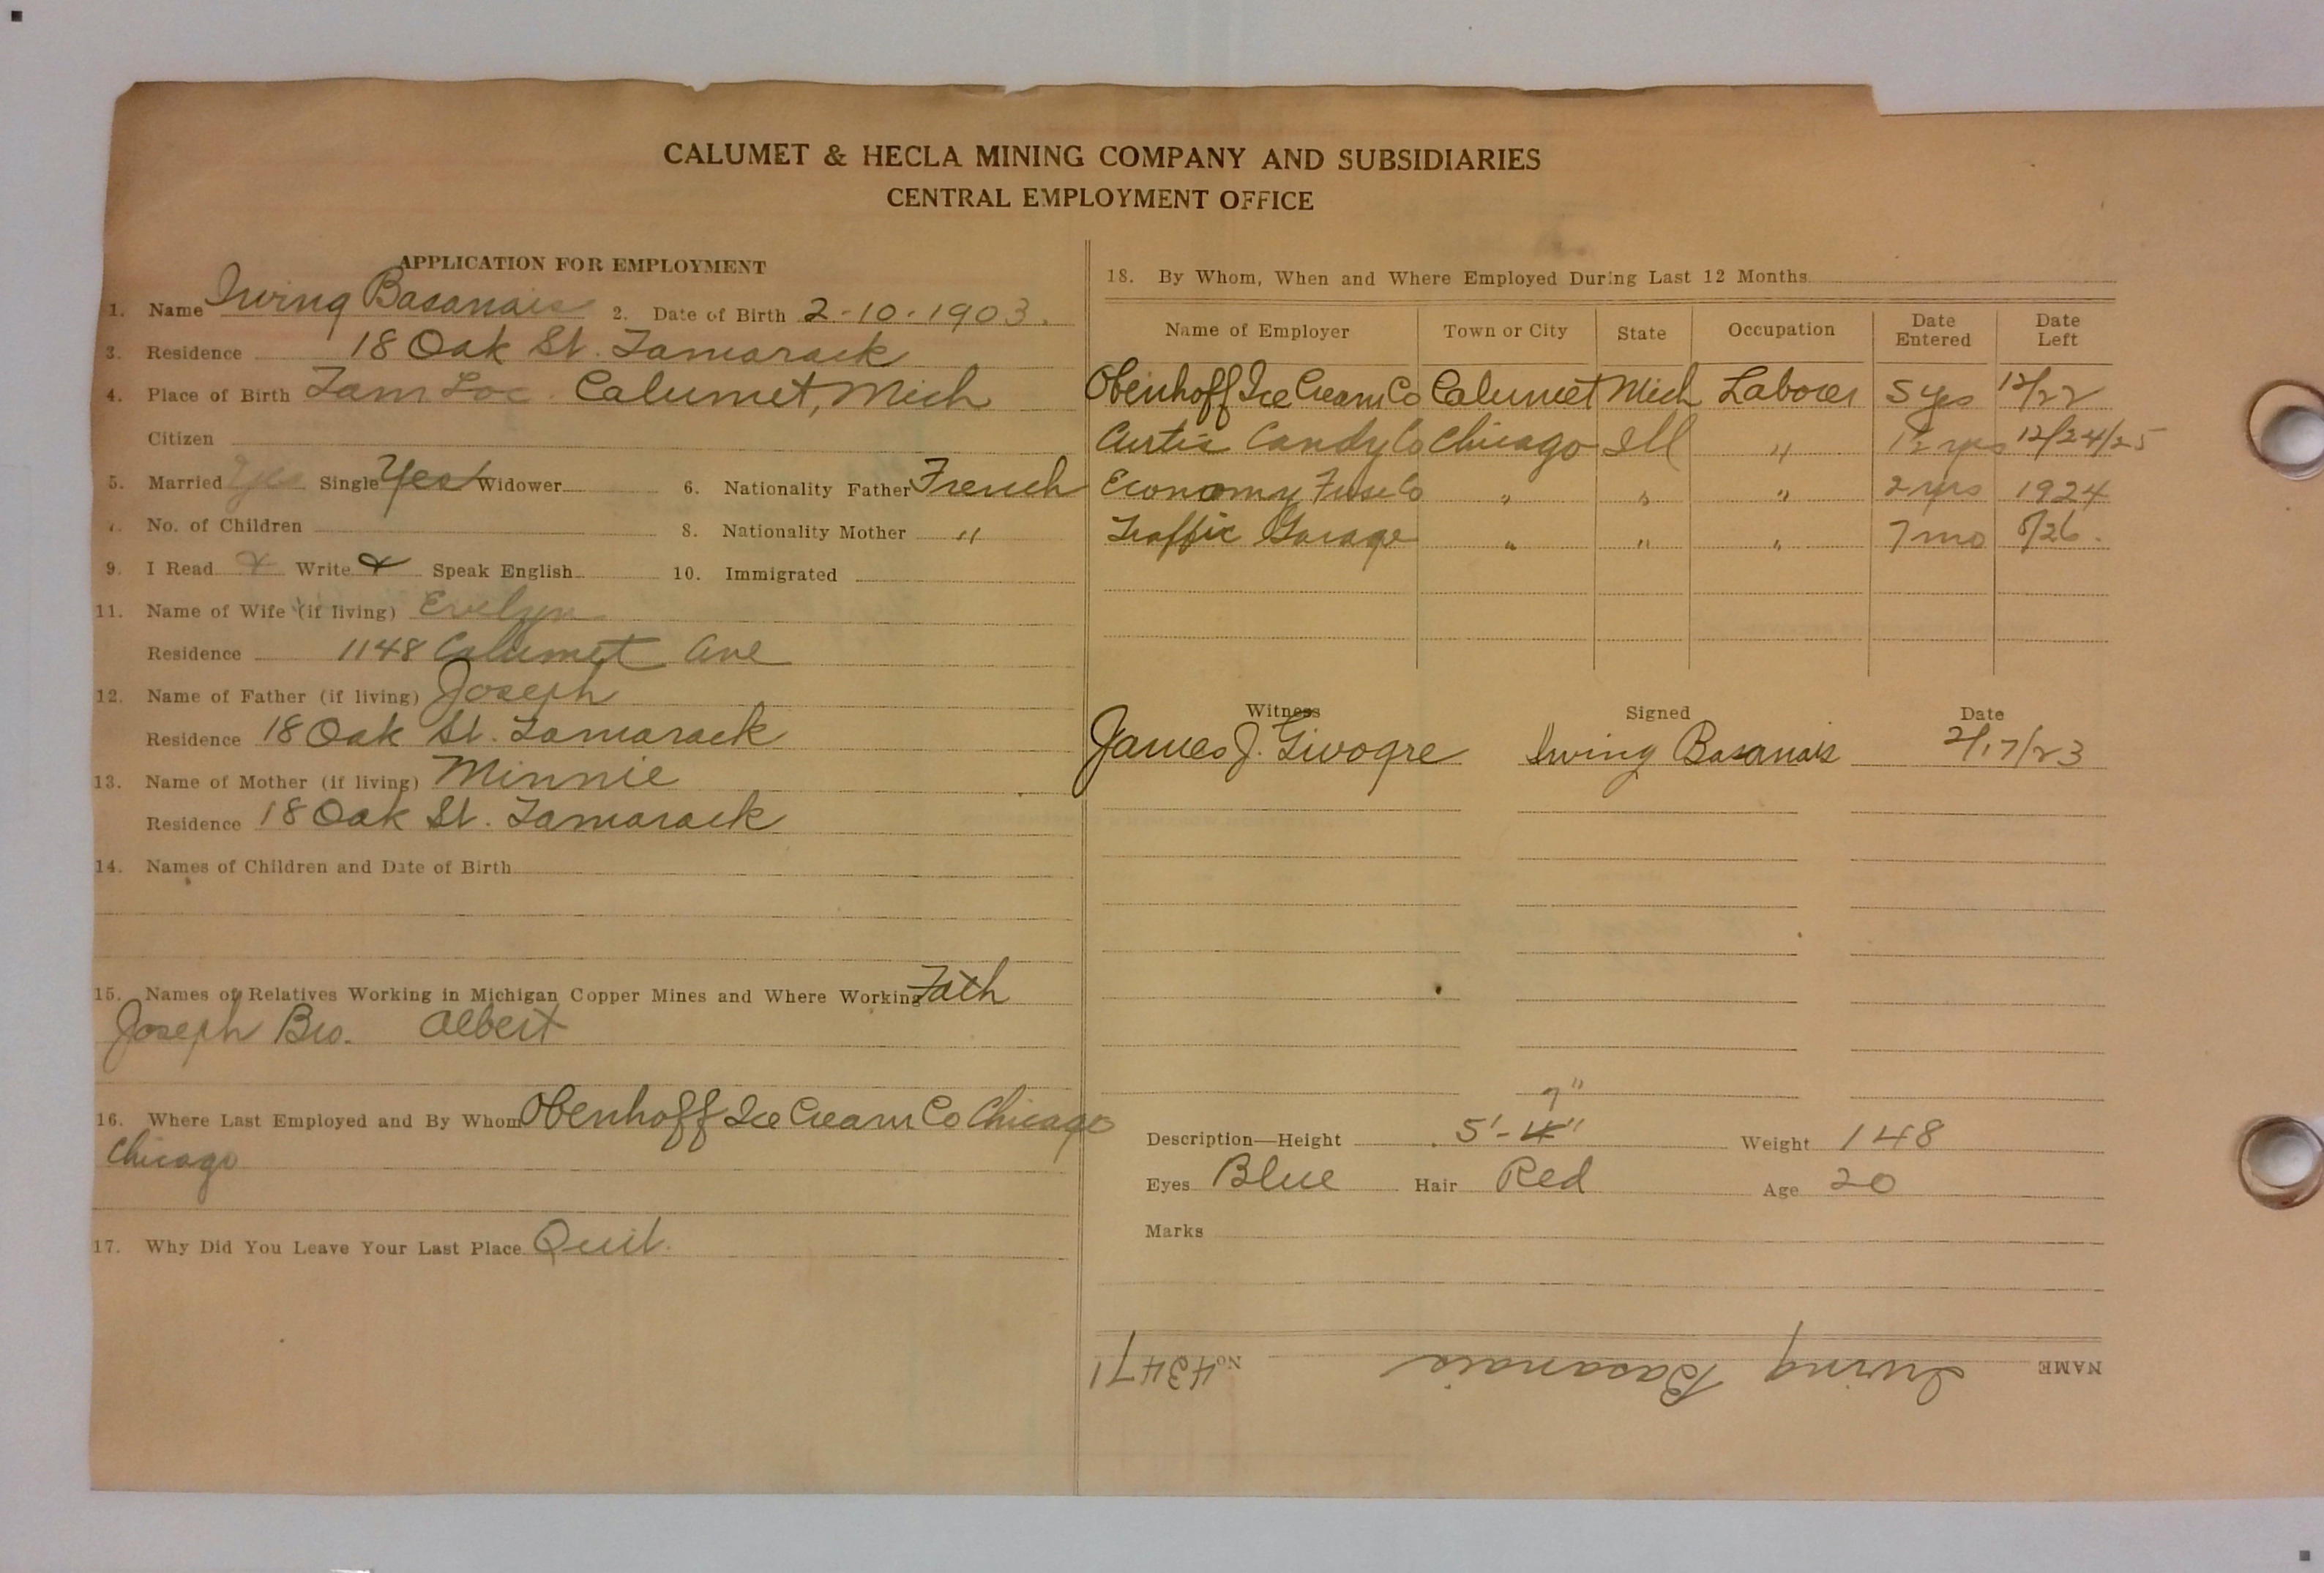 CALUMET & HECLA MINING COMPANY AND SUBSIDIARIES
CENTRAL EMPLOYMENT OFFICE
APPLICATION FOR EMPLOYMENT
1. Name Irving Basanais 2. Date of Birth 2-10-1903.
3. Residence 18 Oak St. Tamarack
4. Place of Birth Tam Loc. Calumet, Mich
Citizen
5. Married Yes Single Yes Widower 6. Nationality Father French
No. of Children 8. Nationality Mother "
9. I Read X Write X Speak English 10. Immigrated
11. Name of Wife (if living) Evelyn
Residence 1148 Calumet Ave
12. Name of Father (if living) Joseph
Residence 18 Oak St. Tamarack
13. Name of Mother (if living) Minnie
Residence 18 Oak St. Tamarack
14. Names of Children and Date of Birth
15. Names of Relatives Working in Michigan Copper Mines and Where Working Fath
Joseph Bro. Albert
16. Where Last Employed and By Whom Obenhoff Ice Cream Co Chicago
Chicago
17. Why Did You Leave Your Last Place Quit.
18. By Whom, When and Where Employed During Last 12 Months
Name of Employer Town or City State Occupation Date Entered Date Left
Obenhoff Ice Cream Co Calumet Mich Laborer 5 yrs 12/22
Curtis Candy Co Chicago Ill " 1½ yrs 12/24/25
Economy Fuse Co " " " 2 yrs 1924
Traffic Garage " " " 7 mo 8/26.
Witness Signed Date
James J. Givogre Irving Basanais 2/17/23
7"
Description—Height 5'-4" Weight 148
Eyes Blue Hair Red Age 20
Marks
NAME Irving Basanais No. 43471